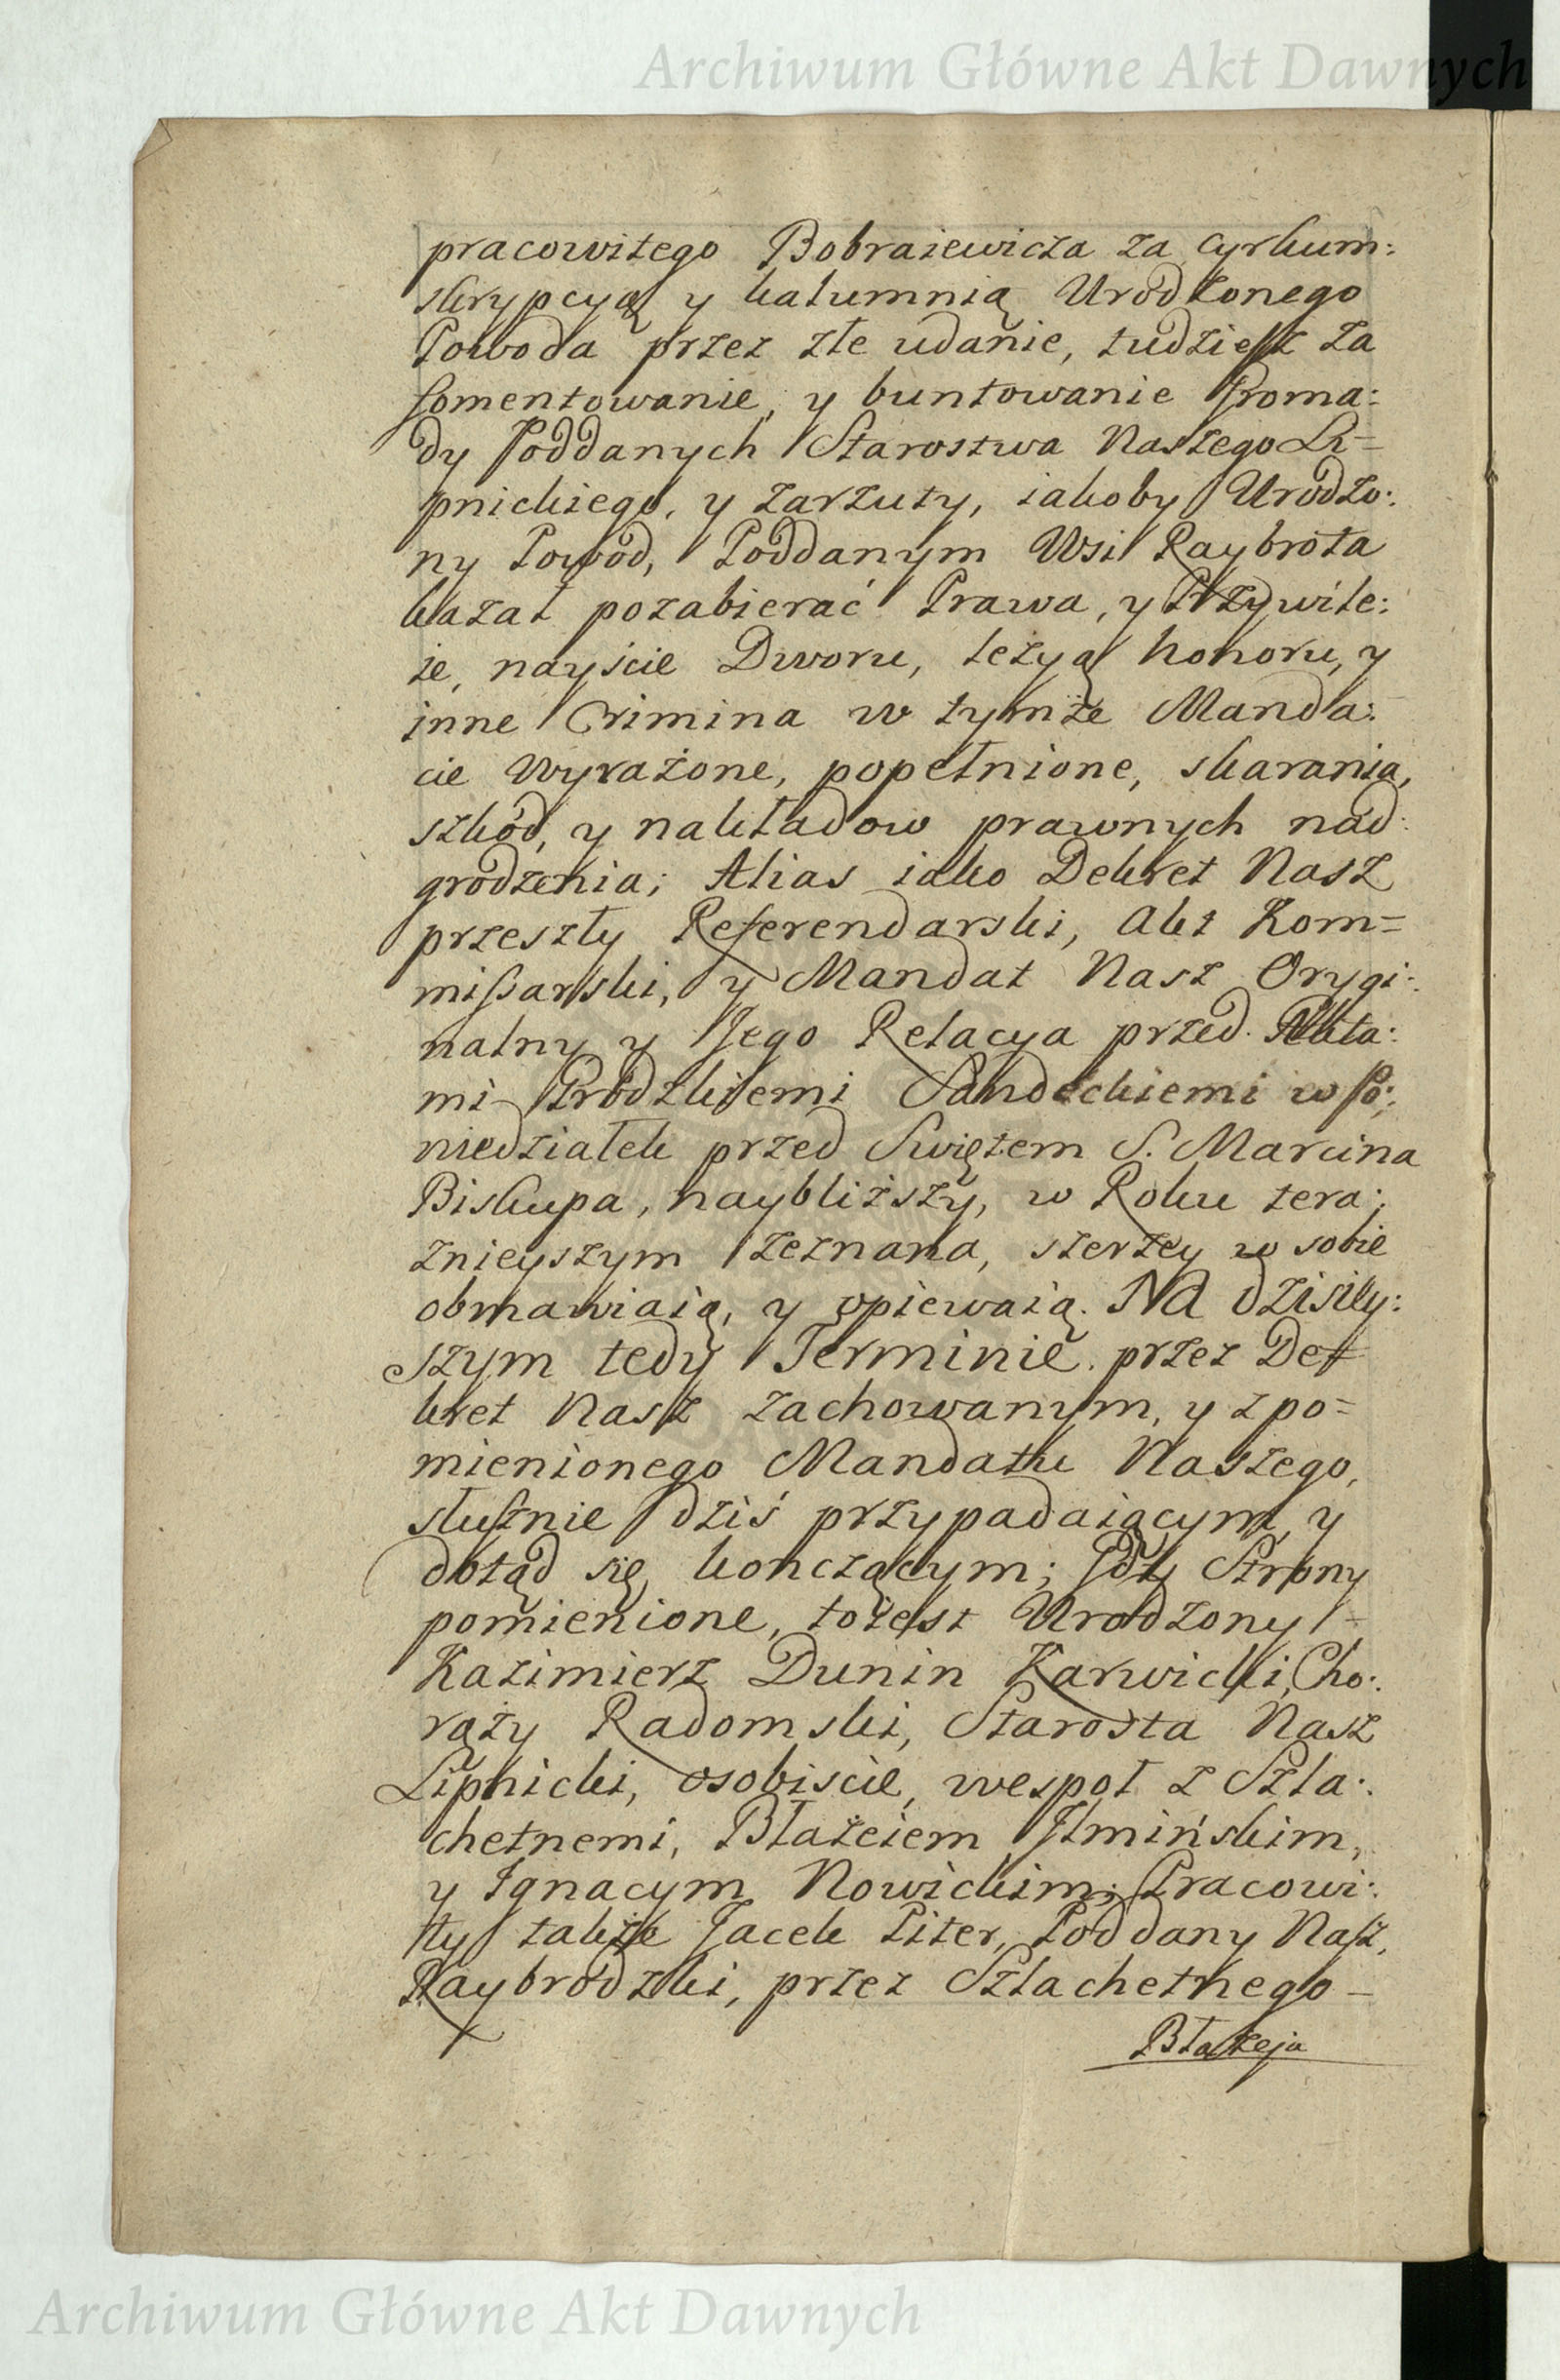 Archiwum Główne Akt Dawnych
pracowitego Bobraiewicza za cyrkum:
skrypcyą y kalumnią Urodzonego
Powoda przez złe udanie, tudzieſz za
fomentowanie, y buntowanie Groma:
dy Poddanych Starostwa Naszego Li=
pnickiego, y zarzuty, iakoby Urodzo:
ny Powod, Poddanym Wsi Raybrota
kazał pozabierać Prawa, y Przywile:
ie, nayscie Dworu, lezyą honoru, y
inne Crimina w tymże Manda:
cie Wyrażone, popełnione, skarania,
szkód, y nakładow prawnych nad:
grodzenia; Alias iako Dekret Nasz
przeszły Referendarski, Akt Kom=
miſsarski, y Mandat Nasz Orygi:
nalny y Jego Relacya przed Akta:
mi Grodzkiemi Sandeckiemi w Po:
niedziałek przed Swiętem S. Marcina
Biskupa, naybliższy, w Roku tera:
znieyszym zeznana, szerzey w sobie
obmawiaią, y opiewaią. Na dzisiey:
szym tedy Terminie przez De=
kret Nasz zachowanym, y z po=
mienionego Mandatu Naszego,
słuſznie dziś przypadaiącym, y
dotąd się kończącym; Gdy Strony
pomienione, toiest Urodzony =
Kazimierz Dunin Karwicki, Cho:
rąży Radomski, Starosta Nasz
Lipnicki, osobiscie, wespoł z Szla:
chetnemi, Błażeiem Jlmińskim,
y Ignacym Nowickim; Pracowi:
ty także Jacek Piter, Poddany Naſz,
Raybrodzki, przez Szlachetnego –
Błażeja
Archiwum Główne Akt Dawnych